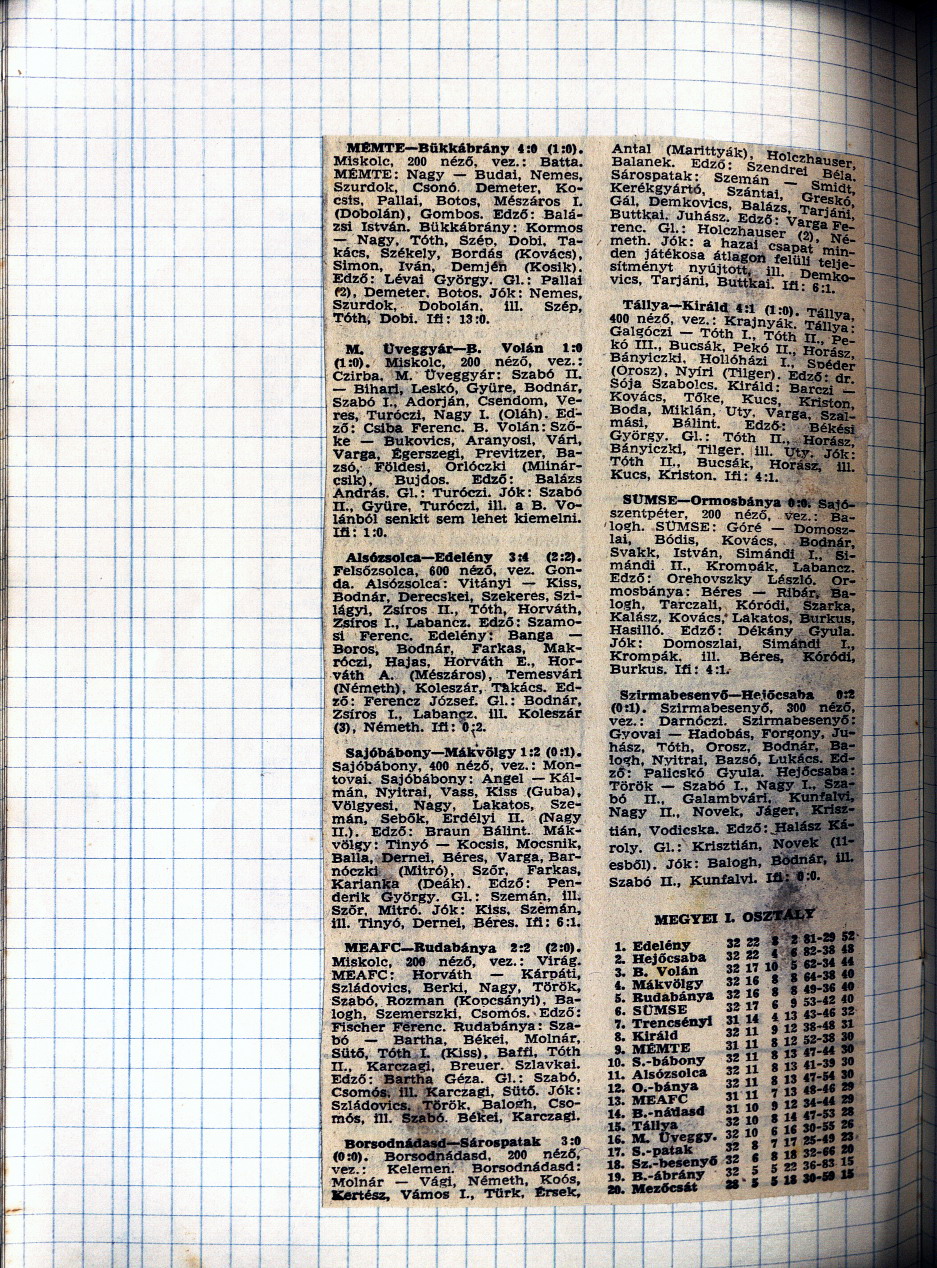 MÉMTE—Bükkábrány 4:0 (1:0).
Miskolc, 200 néző, vez.: Batta.
MÉMTE: Nagy — Budai, Nemes,
Szurdok, Csonó. Demeter, Ko-
csis, Pallai, Botos, Mészáros I.
(Dobolán), Gombos. Edző: Balá-
zsi István. Bükkábrány: Kormos
— Nagy, Tóth, Szép, Dobi, Ta-
kács, Székely, Bordás (Kovács),
Simon, Iván, Demjén (Kosik).
Edző: Lévai György. Gl.: Pallai
(2), Demeter. Botos. Jók: Nemes,
Szurdok, Dobolán, ill. Szép,
Tóth, Dobi. Ifi: 13:0.
M. Üveggyár—B. Volán 1:0
(1:0). Miskolc, 200 néző, vez.:
Czirba, M. Üveggyár: Szabó II.
— Bihari, Leskó, Gyüre, Bodnár,
Szabó I., Adorján, Csendom, Ve-
res, Turóczi, Nagy I. (Oláh). Ed-
ző: Csiba Ferenc. B. Volán: Sző-
ke — Bukovics, Aranyosi, Vári,
Varga, Égerszegi, Previtzer, Ba-
zsó, Földesi, Orlóczki (Mlinár-
csik), Bujdos. Edző: Balázs
András. Gl.: Turóczi. Jók: Szabó
II., Gyüre, Turóczi, ill. a B. Vo-
lánból senkit sem lehet kiemelni.
Ifi: 1:0.
Alsózsolca—Edelény 3:4 (2:2).
Felsőzsolca, 600 néző, vez. Gon-
da. Alsózsolca: Vitányi — Kiss,
Bodnár, Derecskei, Szekeres, Szi-
lágyi, Zsíros II., Tóth, Horváth,
Zsíros I., Labancz. Edző: Szamo-
si Ferenc. Edelény: Banga —
Boros, Bodnár, Farkas, Mak-
róczi, Hajas, Horváth E., Hor-
váth A. (Mészáros), Temesvári
(Németh), Koleszár, Takács. Ed-
ző: Ferencz József. Gl.: Bodnár,
Zsíros I., Labancz. ill. Koleszár
(3), Németh. Ifi: 0:2.
Sajóbábony—Mákvölgy 1:2 (0:1).
Sajóbábony, 400 néző, vez.: Mon-
tovai. Sajóbábony: Angel — Kál-
mán, Nyitrai, Vass, Kiss (Guba),
Völgyesi, Nagy, Lakatos, Sze-
mán, Sebők, Erdélyi II. (Nagy
II.). Edző: Braun Bálint. Mák-
völgy: Tinyó — Kocsis, Mocsnik,
Balla, Dernei, Béres, Varga, Bar-
nóczki (Mitró), Szőr, Farkas,
Karianka (Deák). Edző: Pen-
derik György. Gl.: Szemán, ill.
Szőr, Mitró. Jók: Kiss, Szemán,
ill. Tinyó, Dernei, Béres. Ifi: 6:1.
MEAFC—Rudabánya 2:2 (2:0).
Miskolc, 200 néző, vez.: Virág.
MEAFC: Horváth — Kárpáti,
Szládovics, Berki, Nagy, Török,
Szabó, Rozman (Kopcsányi), Ba-
logh, Szemerszki, Csomós. Edző:
Fischer Ferenc. Rudabánya: Sza-
bó — Bartha, Békei, Molnár,
Sütő, Tóth I. (Kiss), Baffi, Tóth
II., Karczagi, Breuer. Szlavkai.
Edző: Bartha Géza. Gl.: Szabó,
Csomós, ill. Karczagi, Sütő. Jók:
Szládovics, Török, Balogh, Cso-
mós, ill. Szabó. Békei, Karczagi.
Borsodnádasd—Sárospatak 3:0
(0:0). Borsodnádasd, 200 néző,
vez.: Kelemen. Borsodnádasd:
Molnár — Vági, Németh, Koós,
Kertész, Vámos I., Türk, Érsek,
Antal (Marittyák), Holczhauser,
Balanek. Edző: Szendrei Béla.
Sárospatak: Szemán — Smidt,
Kerékgyártó, Szántai, Greskó,
Gál, Demkovics, Balázs, Tarjáni,
Buttkai. Juhász. Edző: Varga Fe-
renc. Gl.: Holczhauser (2), Né-
meth. Jók: a hazai csapat min-
den játékosa átlagon felüli telje-
sítményt nyújtott, ill. Demko-
vics, Tarjáni, Buttkai. Ifi: 6:1.
Tállya—Királd 4:1 (1:0). Tállya,
400 néző, vez.: Krajnyák. Tállya:
Galgóczi — Tóth I., Tóth II., Pe-
kó III., Bucsák, Pekó II., Horász,
Bányiczki, Hollóházi I., Spéder
(Orosz), Nyíri (Tilger). Edző: dr.
Sója Szabolcs. Királd: Barczi —
Kovács, Tőke, Kucs, Kriston,
Boda, Miklán, Uty. Varga, Szal-
mási, Bálint. Edző: Békési
György. Gl.: Tóth II., Horász,
Bányiczki, Tilger. ill. Uty. Jók:
Tóth II., Bucsák, Horász, ill.
Kucs, Kriston. Ifi: 4:1.
SÜMSE—Ormosbánya 0:0. Sajó-
szentpéter, 200 néző, vez.: Ba-
logh. SÜMSE: Góré — Domosz-
lai, Bódis, Kovács, Bodnár,
Svakk, István, Simándi I., Si-
mándi II., Krompák, Labancz.
Edző: Orehovszky László. Or-
mosbánya: Béres — Ribár, Ba-
logh, Tarczali, Kóródi, Szarka,
Kalász, Kovács, Lakatos, Burkus,
Hasilló. Edző: Dékány Gyula.
Jók: Domoszlai, Simándi I.,
Krompák, ill. Béres, Kóródi,
Burkus. Ifi: 4:1.
Szirmabesenyő—Hejőcsaba 0:2
(0:1). Szirmabesenyő, 300 néző,
vez.: Darnóczi. Szirmabesenyő:
Gyovai — Hadobás, Forgony, Ju-
hász, Tóth, Orosz, Bodnár, Ba-
logh, Nyitrai, Bazsó, Lukács. Ed-
ző: Palicskó Gyula. Hejőcsaba:
Török — Szabó I., Nagy I., Sza-
bó II., Galambvári, Kunfalvi,
Nagy II., Novek, Jáger, Krisz-
tián, Vodicska. Edző: Halász Ká-
roly. Gl.: Krisztián, Novek (11-
esből). Jók: Balogh, Bodnár, ill.
Szabó II., Kunfalvi. Ifi: 0:0.
MEGYEI I. OSZTÁLY
1. Edelény 32 22 8 2 81-29 52
2. Hejőcsaba 32 22 4 6 82-38 48
3. B. Volán 32 17 10 5 62-34 44
4. Mákvölgy 32 16 8 8 64-38 40
5. Rudabánya 32 16 8 8 49-36 40
6. SÜMSE 32 17 6 9 53-42 40
7. Trencsényi 31 14 4 13 43-46 32
8. Királd 32 11 9 12 38-48 31
9. MÉMTE 31 11 8 12 52-38 30
10. S.-bábony 32 11 8 13 47-44 30
11. Alsózsolca 32 11 8 13 41-39 30
12. O.-bánya 32 11 8 13 47-54 30
13. MEAFC 31 11 7 13 48-46 29
14. B.-nádasd 31 10 9 12 34-44 29
15. Tállya 32 10 8 14 47-53 28
16. M. Üveggy. 32 10 6 16 30-55 26
17. S.-patak 32 8 7 17 25-49 23
18. Sz.-besenyő 32 6 8 18 32-66 20
19. B.-ábrány 32 5 5 22 36-83 15
20. Mezőcsát 28 5 5 18 30-59 15